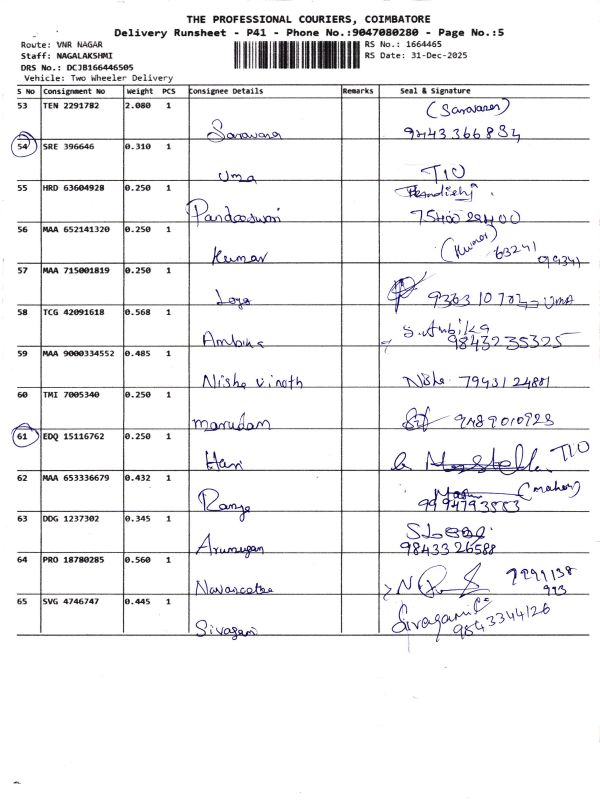 THE PROFESSIONAL COURIERS, COIMBATORE
Delivery Runsheet - P41 - Phone No.:9047080280 - Page No.:5
Route: VNR NAGAR
Staff: NAGALAKSHMI
DRS No.: DCJB166446505
Vehicle: Two Wheeler Delivery
RS No.: 1664465
RS Date: 31-Dec-2025
S No Consignment No Weight PCS Consignee Details Remarks Seal & Signature
53 TEN 2291782 2.080 1 Saravana (Saravanan)
54 SRE 396646 0.310 1 Uma T10
55 HRD 63604928 0.250 1
56 MAA 652141320 0.250 1 Kumar (Kumar) 63241
57 MAA 715001819 0.250 1 UMA
58 TCG 42091618 0.568 1 Ambika S. Ambika
9843235325
59 MAA 9000334552 0.485 1 Nisha Vinoth Nisha 7943124881
60 TMI 7005340 0.250 1 9489010923
61 EDQ 15116762 0.250 1 Hari T10
62 MAA 653336679 0.432 1
63 DDG 1237302 0.345 1 Arumugan
9843326588
64 PRO 18780285 0.560 1
65 SVG 4746747 0.445 1 Sivagami Sivagami
9843344126